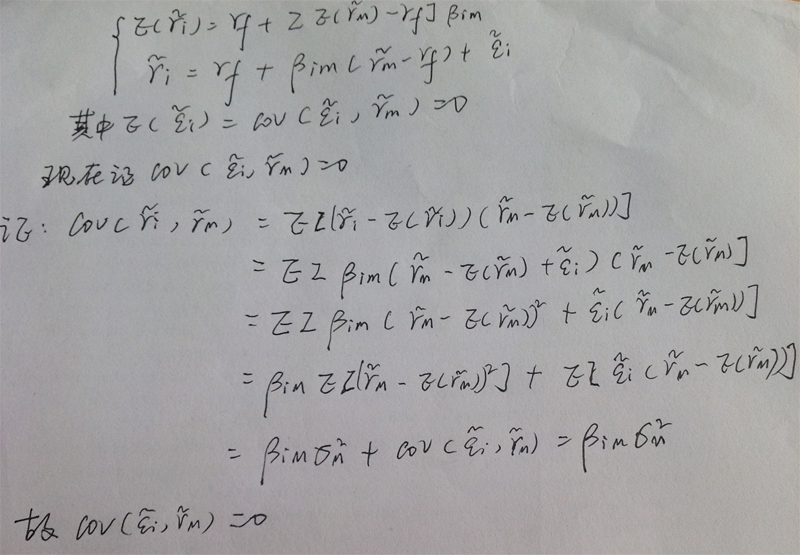 E(r̃i) = rf + [E(r̃m) - rf] βim
r̃i = rf + βim(r̃m - rf) + ε̃i
其中 E(ε̃i) = cov(ε̃i, r̃m) = 0
现在证 cov(ε̃i, r̃m) = 0
证: cov(r̃i, r̃m) = E[(r̃i - E(r̃i))(r̃m - E(r̃m))]
= E[βim(r̃m - E(r̃m) + ε̃i)(r̃m - E(r̃m)]
= E[βim(r̃m - E(r̃m))² + ε̃i(r̃m - E(r̃m))]
= βim E[(r̃m - E(r̃m)²] + E[ε̃i(r̃m - E(r̃m))]
= βim σm² + cov(ε̃i, r̃m) = βim σm²
故 cov(ε̃i, r̃m) = 0